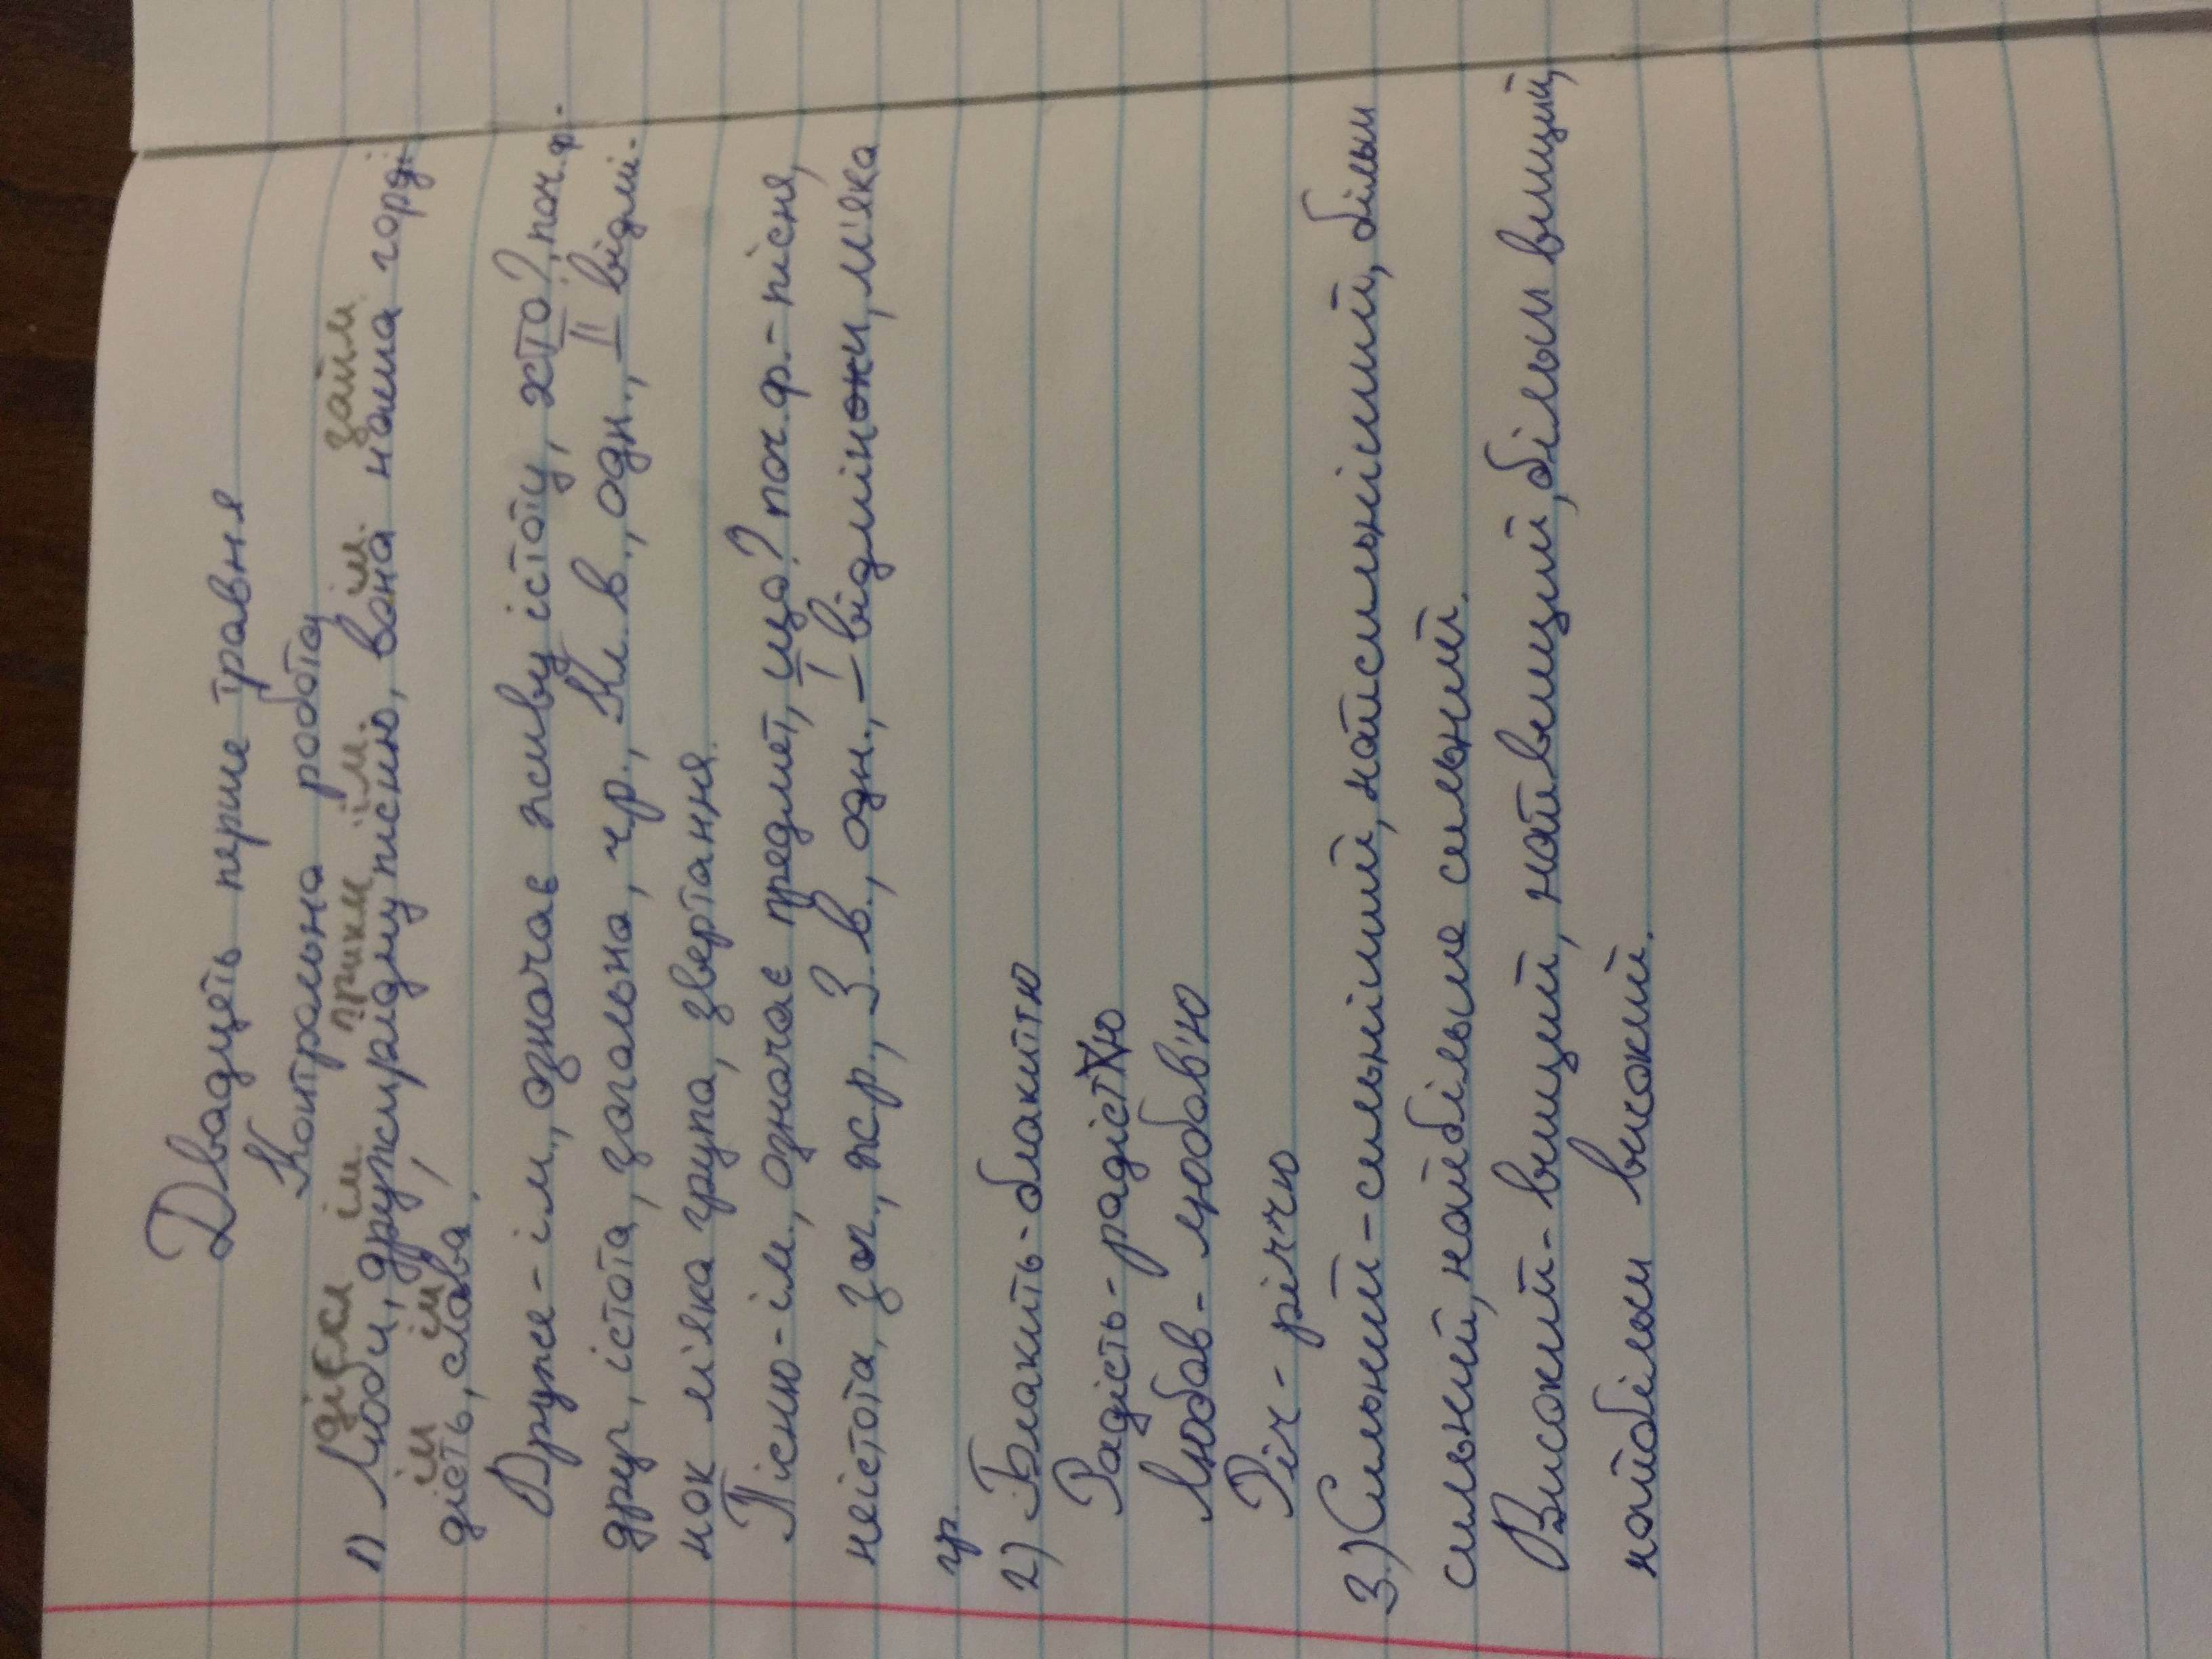 Двадцять перше травня
Контрольна робота
дієсл ім. прикм ім. ім. займ
1) Люби, друже, рідну пісню, вона наша гордість,
ім ім
дість, слава.
Друже - ім., означає живу істоту, хто?, поч.ф.-
друг, істота, загальна, ч.р., Кл. в., одн., II відмі-
нок м'яка група, звертання.
Пісню - ім., означає предмет, що? поч.ф.- пісня,
неістота, заг., ж.р., З. в., одн., I відміноки, м'яка
гр.
2) Блакить - блакиттю
Радість - радістю
Любов - любов'ю
Річ - річчю
3.) Сильний - сильніший, найсильніший, більш
сильний, найбільше сильний.
Високий - вищий, найвищий, більш вищий,
найбільш високий.